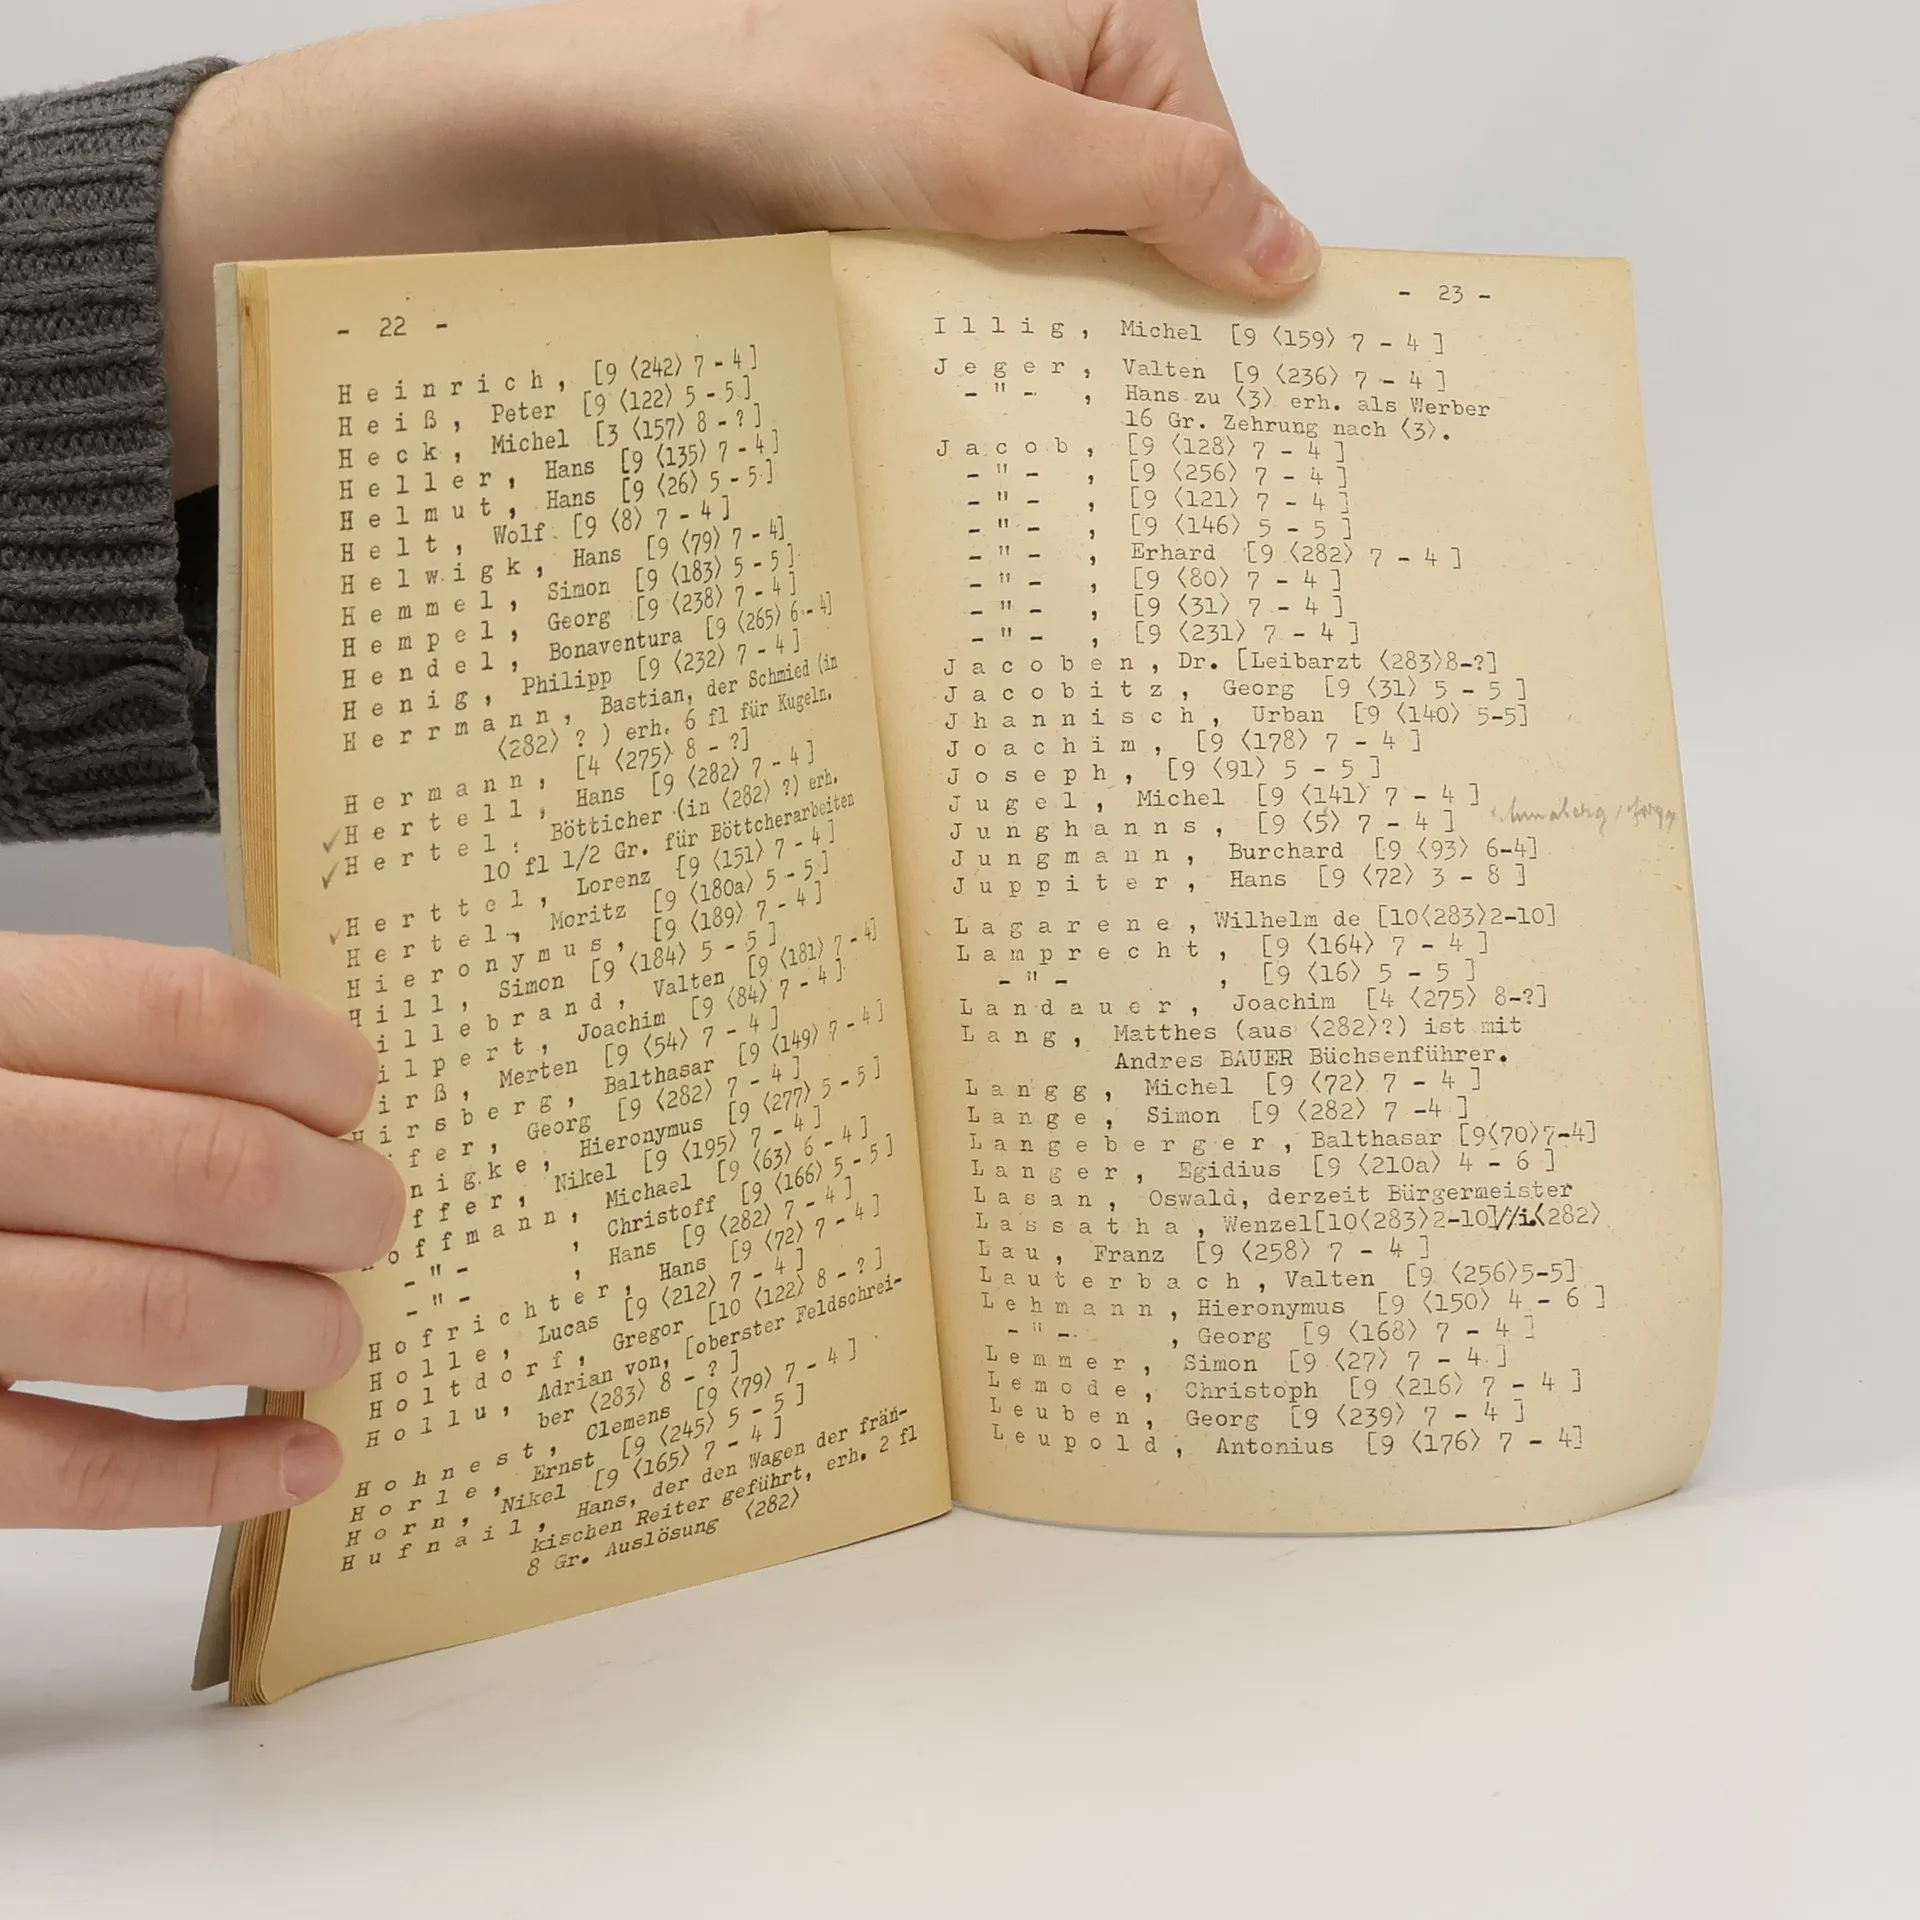 - 22 -
Heinrich, [9 ⟨242⟩ 7 - 4]
Heiß, Peter [9 ⟨122⟩ 5 - 5]
Heck, Michel [3 ⟨157⟩ 8 - ?]
Heller, Hans [9 ⟨135⟩ 7 - 4]
Helmut, Hans [9 ⟨26⟩ 5 - 5]
Helt, Wolf [9 ⟨8⟩ 7 - 4]
Helwigk, Hans [9 ⟨79⟩ 7 - 4]
Hemmel, Simon [9 ⟨183⟩ 5 - 5]
Hempel, Georg [9 ⟨238⟩ 7 - 4]
Hendel, Bonaventura [9 ⟨265⟩ 6 - 4]
Henig, Philipp [9 ⟨232⟩ 7 - 4]
Herrmann, Bastian, der Schmied (in
⟨282⟩ ? ) erh. 6 fl für Kugeln.
Hermann, [4 ⟨275⟩ 8 - ?]
Hertell, Hans [9 ⟨282⟩ 7 - 4]
Hertel, Bötticher (in ⟨282⟩ ?) erh.
10 fl 1/2 Gr. für Böttcherarbeiten
Herttel, Lorenz [9 ⟨151⟩ 7 - 4]
Hertel, Moritz [9 ⟨180a⟩ 5 - 5]
Hieronymus, [9 ⟨189⟩ 7 - 4]
Hill, Simon [9 ⟨184⟩ 5 - 5]
illebrand, Valten [9 ⟨181⟩ 7 - 4]
ilpert, Joachim [9 ⟨84⟩ 7 - 4]
irß, Merten [9 ⟨54⟩ 7 - 4]
irsberg, Balthasar [9 ⟨149⟩ 7 - 4]
fer, Georg [9 ⟨282⟩ 7 - 4]
nigke, Hieronymus [9 ⟨277⟩ 5 - 5]
ffer, Nikel [9 ⟨195⟩ 7 - 4]
offmann, Michael [9 ⟨63⟩ 6 - 4]
- " - , Christoff [9 ⟨166⟩ 5 - 5]
- " - , Hans [9 ⟨282⟩ 7 - 4]
Hofrichter, Hans [9 ⟨72⟩ 7 - 4]
Holle, Lucas [9 ⟨212⟩ 7 - 4]
Holtdorf, Gregor [10 ⟨122⟩ 8 - ?]
Hollu, Adrian von, [oberster Feldschrei-
ber ⟨283⟩ 8 - ?]
Hohnest, Clemens [9 ⟨79⟩ 7 - 4]
Horle, Ernst [9 ⟨245⟩ 5 - 5]
Horn, Nikel [9 ⟨165⟩ 7 - 4]
Hufnail, Hans, der den Wagen der frän-
kischen Reiter geführt, erh. 2 fl
8 Gr. Auslösung ⟨282⟩
- 23 -
Illig, Michel [9 ⟨159⟩ 7 - 4]
Jeger, Valten [9 ⟨236⟩ 7 - 4]
- " - , Hans zu ⟨3⟩ erh. als Werber
16 Gr. Zehrung nach ⟨3⟩.
Jacob, [9 ⟨128⟩ 7 - 4]
- " - , [9 ⟨256⟩ 7 - 4]
- " - , [9 ⟨121⟩ 7 - 4]
- " - , [9 ⟨146⟩ 5 - 5]
- " - , Erhard [9 ⟨282⟩ 7 - 4]
- " - , [9 ⟨80⟩ 7 - 4]
- " - , [9 ⟨31⟩ 7 - 4]
- " - , [9 ⟨231⟩ 7 - 4]
Jacoben, Dr. [Leibarzt ⟨283⟩8-?]
Jacobitz, Georg [9 ⟨31⟩ 5 - 5]
Jhannisch, Urban [9 ⟨140⟩ 5-5]
Joachim, [9 ⟨178⟩ 7 - 4]
Joseph, [9 ⟨91⟩ 5 - 5]
Jugel, Michel [9 ⟨141⟩ 7 - 4]
Junghanns, [9 ⟨5⟩ 7 - 4]
Jungmann, Burchard [9 ⟨93⟩ 6-4]
Juppiter, Hans [9 ⟨72⟩ 3 - 8]
Lagarene, Wilhelm de [10⟨283⟩2-10]
Lamprecht, [9 ⟨164⟩ 7 - 4]
- " - , [9 ⟨16⟩ 5 - 5]
Landauer, Joachim [4 ⟨275⟩ 8-?]
Lang, Matthes (aus ⟨282⟩?) ist mit
Andres BAUER Büchsenführer.
Langg, Michel [9 ⟨72⟩ 7 - 4]
Lange, Simon [9 ⟨282⟩ 7 -4]
Langeberger, Balthasar [9⟨70⟩7-4]
Langer, Egidius [9 ⟨210a⟩ 4 - 6]
Lasan, Oswald, derzeit Bürgermeister
Lassatha, Wenzel[10⟨283⟩2-10]//i.⟨282⟩
Lau, Franz [9 ⟨258⟩ 7 - 4]
Lauterbach, Valten [9 ⟨256⟩5-5]
Lehmann, Hieronymus [9 ⟨150⟩ 4 - 6]
- " - , Georg [9 ⟨168⟩ 7 - 4]
Lemmer, Simon [9 ⟨27⟩ 7 - 4]
Lemode, Christoph [9 ⟨216⟩ 7 - 4]
Leuben, Georg [9 ⟨239⟩ 7 - 4]
Leupold, Antonius [9 ⟨176⟩ 7 - 4]